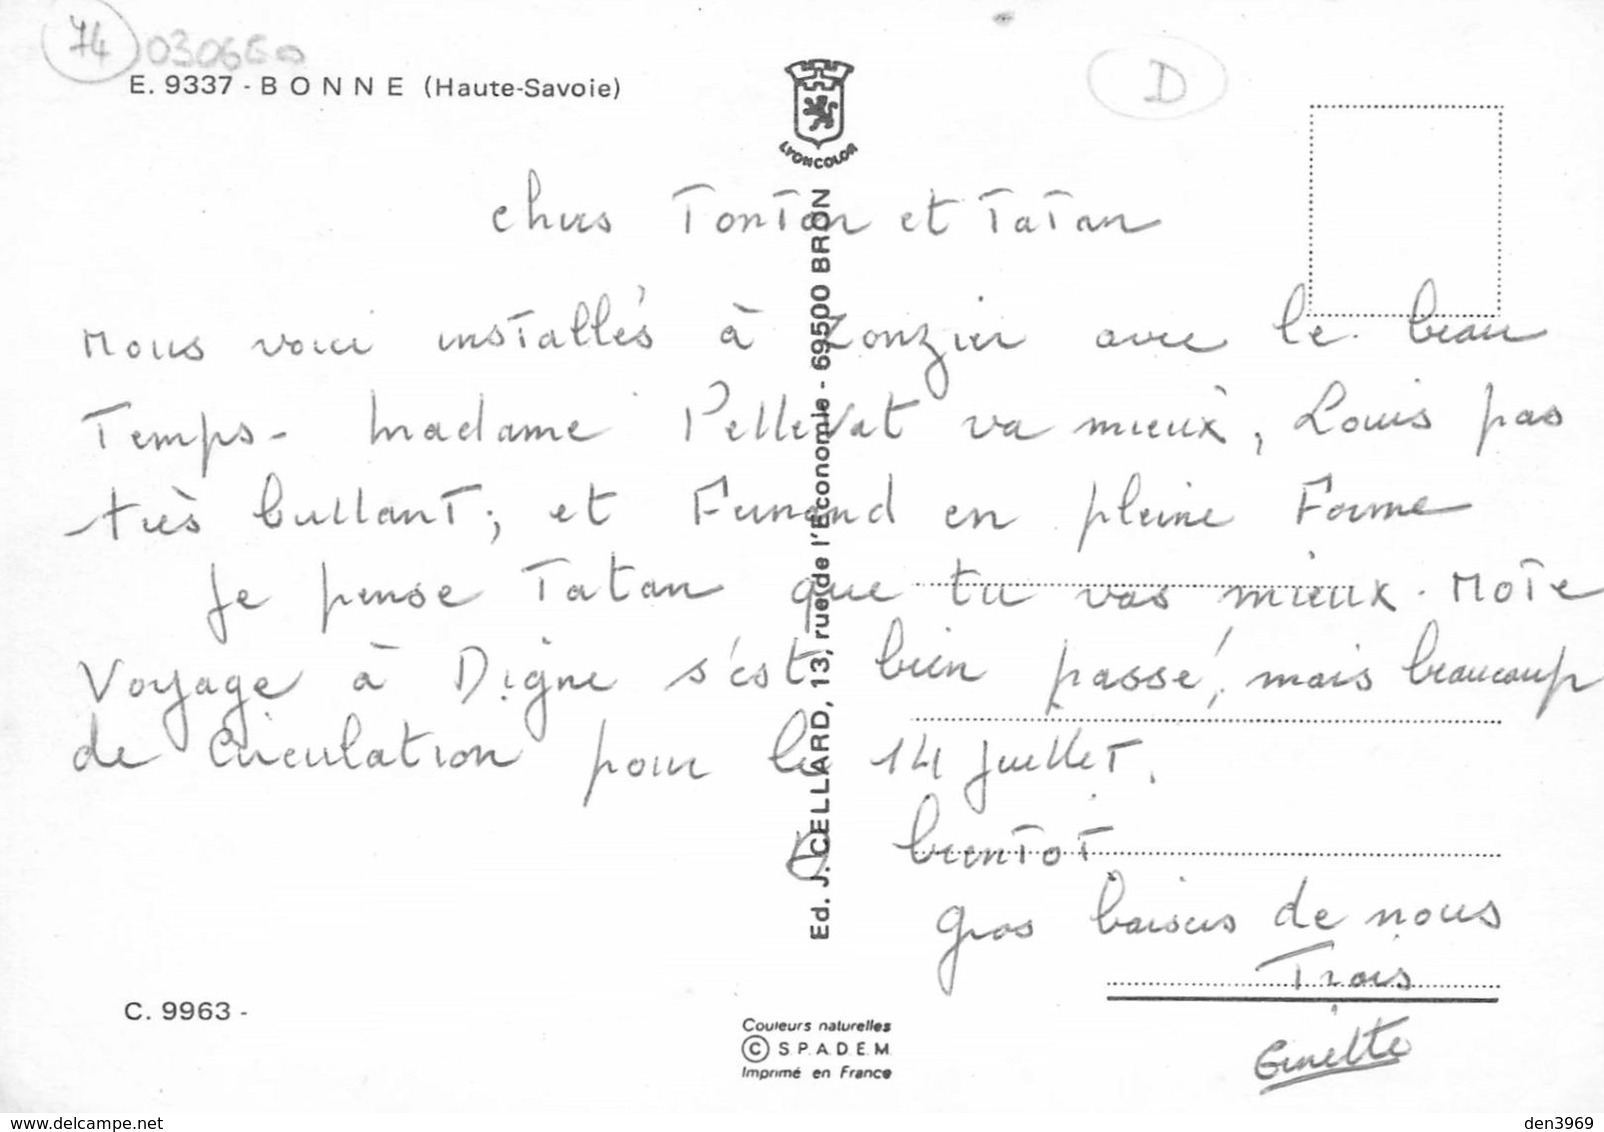 74 03066
D
E. 9337 - BONNE (Haute-Savoie)
LYONCOLOR
Chers TonTon et TaTan
Nous voici insTallés à Zonzier avec le beau
Temps - Madame Pellevat va mieux, Louis pas
très brillanT; et Fernand en pleine Forme
Je pense Tatan que tu vas mieux. NoTre
Voyage à Digne s'est bien passé, mais beaucoup
de Circulation pour le 14 JuilleT.
A bienTôT
Gros baisers de nous
Trois
Ginette
Ed. J. CELLARD, 13, rue de l'Economie - 69500 BRON
C. 9963 -
Couleurs naturelles
© S.P.A.D.E.M.
Imprimé en France
www.delcampe.net
den3969